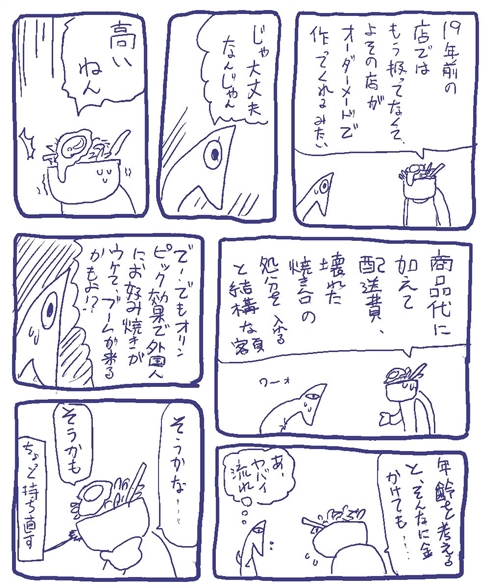 19年前の
店では
もう扱ってなくて、
よその店が
オーダーメードで
作ってくれるみたい
じゃ大丈夫
なんじゃん
高い
ねん
商品代に
加えて
配送費、
壊れた
焼き台の
処分を入れる
と結構な額
ワーォ
で!でもオリン
ピック効果で外国人
にお好み焼きが
ウケて、ブームが来る
かもよ!?
年齢を考える
と、そんなに金
かけても…
あ、
ヤバイ
流れ
そうかな…
そうかも
ちょっと持ち直す